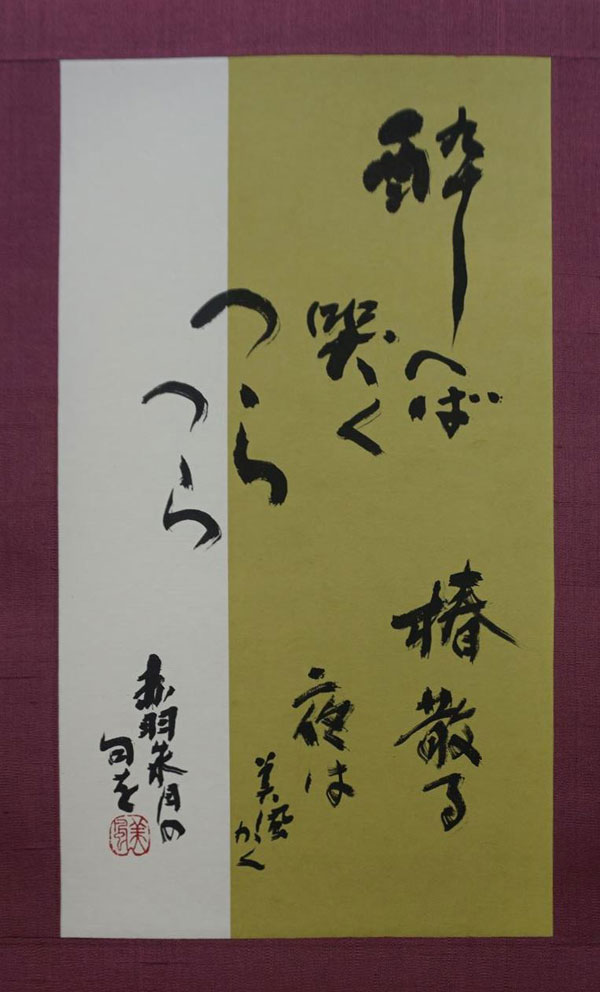 酔へば
哭く
つら
つら
椿散る
夜は
赤羽朱月の
句を
美風かく